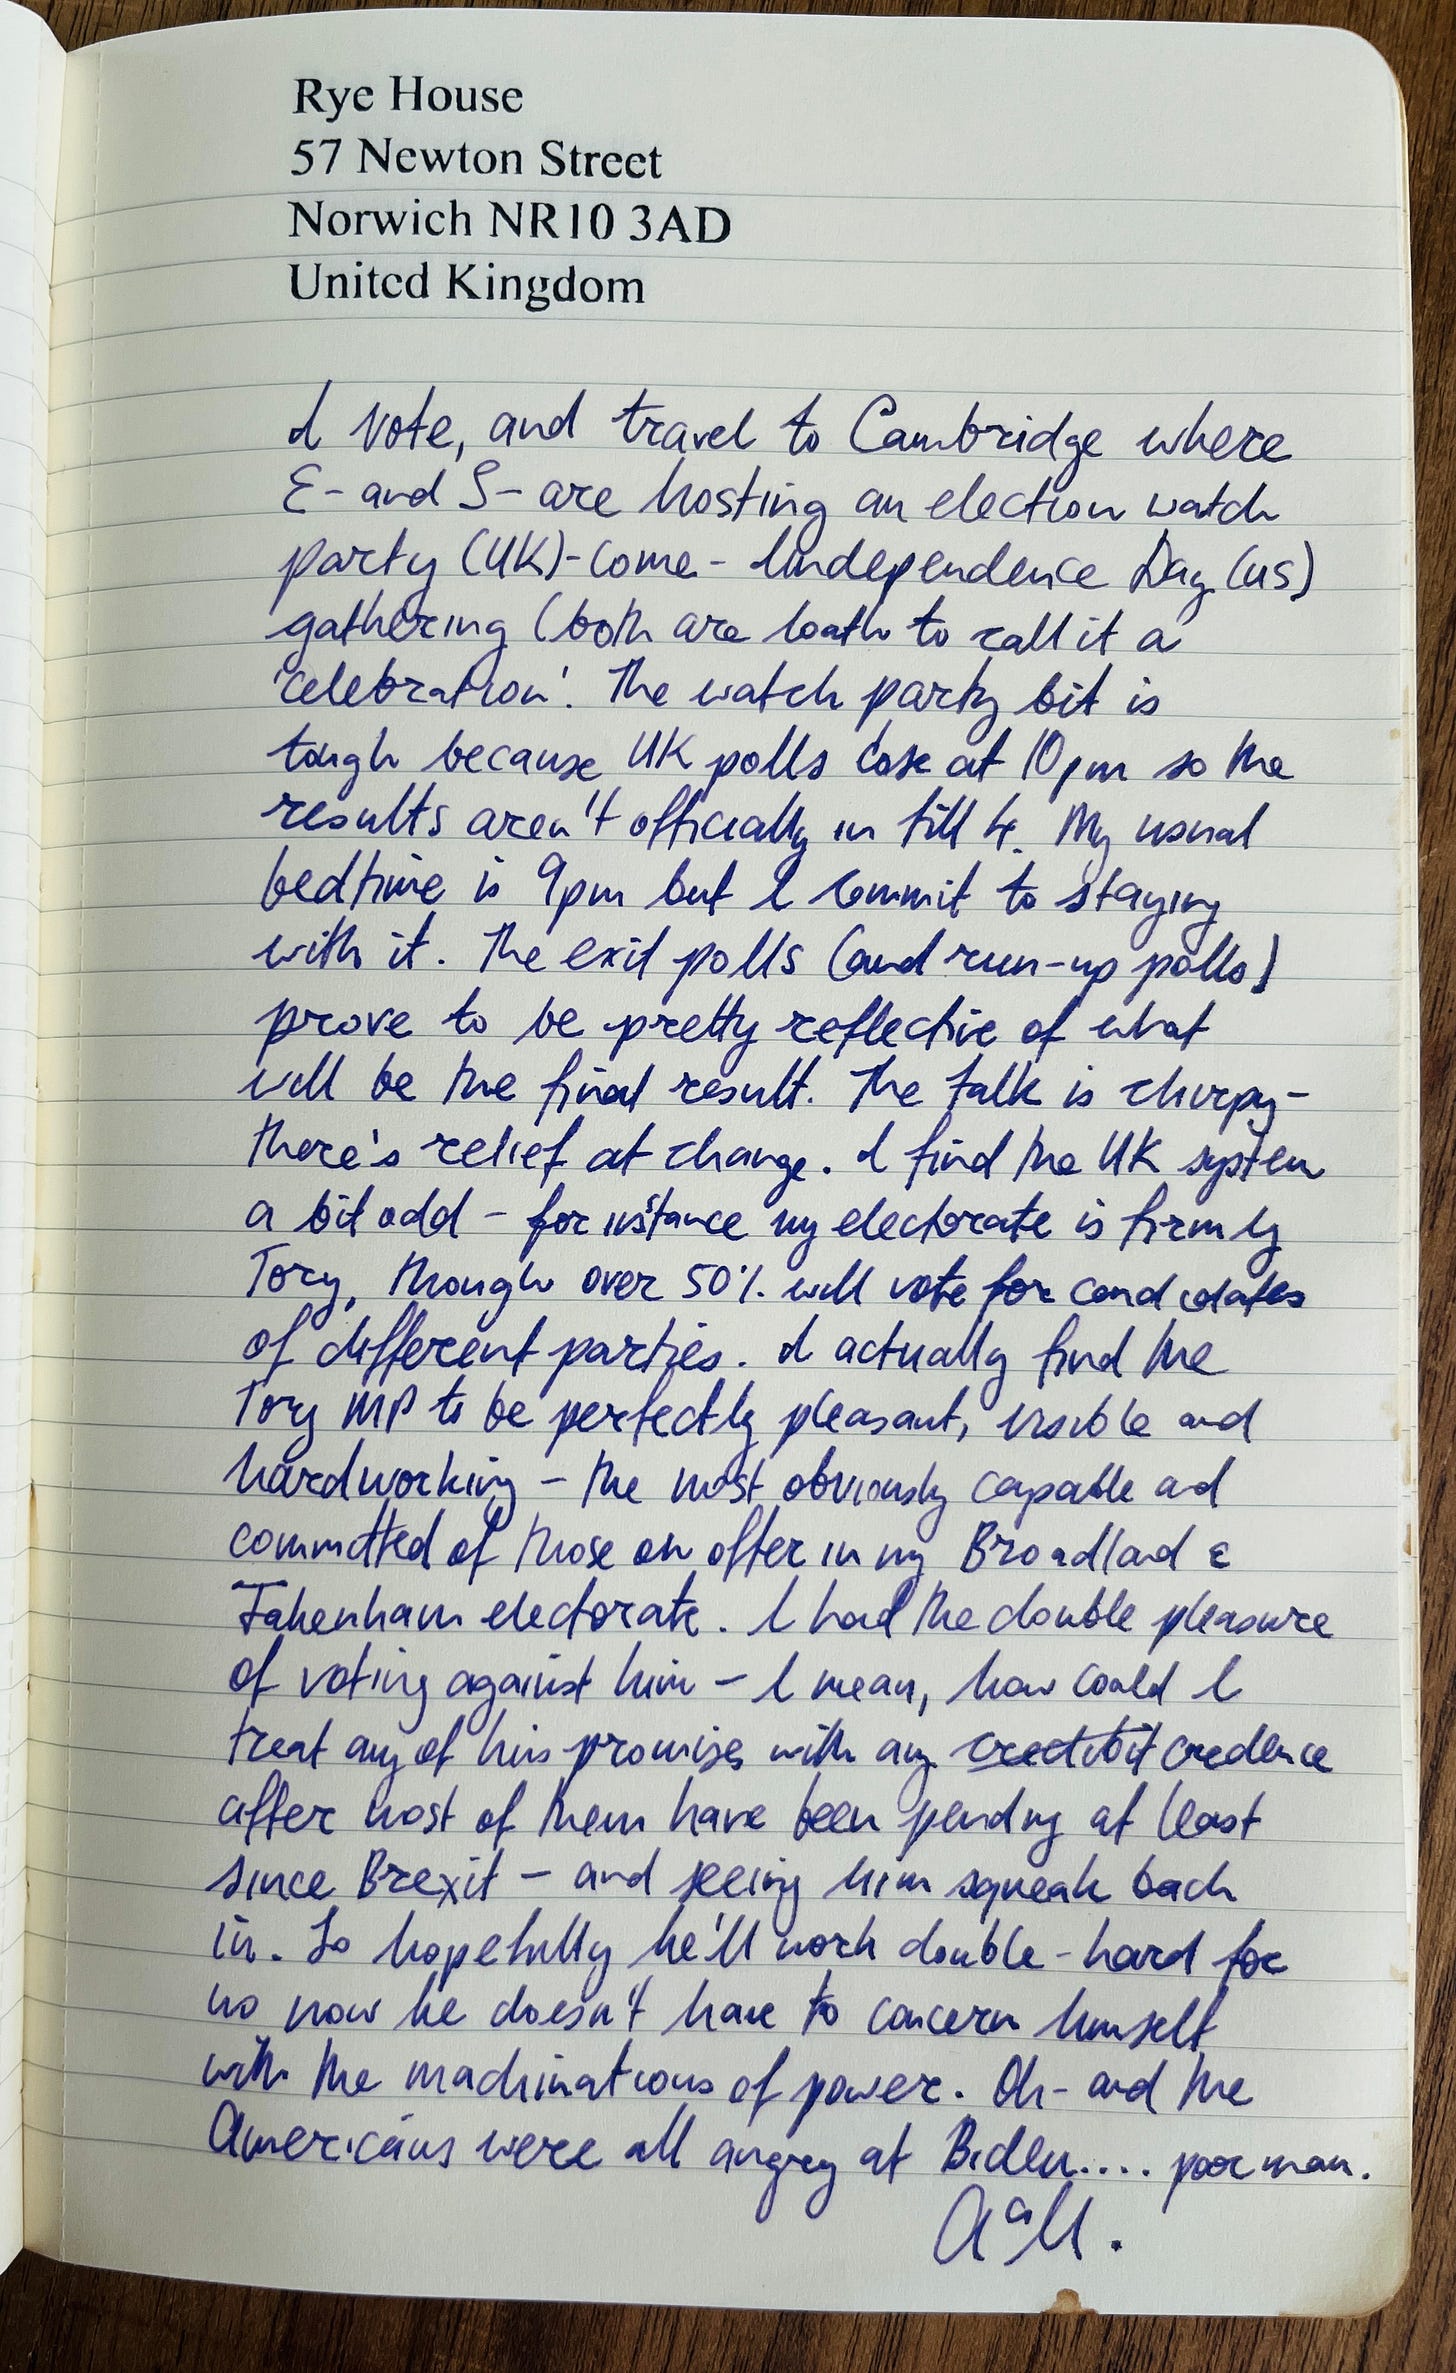 Rye House
57 Newton Street
Norwich NR10 3AD
United Kingdom
I vote, and travel to Cambridge where
E- and S- are hosting an election watch
party (UK)-come- Independence Day (US)
gathering (both are loath to call it a
'celebration'. The watch party bit is
tough because UK polls close at 10pm so the
results aren't officially in till 4. My usual
bedtime is 9pm but I commit to staying
with it. The exit polls (and run-up polls)
prove to be pretty reflective of what
will be the final result. The talk is chirpy-
there's relief at change. I find the UK system
a bit odd - for instance my electorate is firmly
Tory, though over 50% will vote for candidates
of different parties. I actually find the
Tory MP to be perfectly pleasant, visible and
hardworking - the most obviously capable and
committed of those on offer in my Broadland &
Fakenham electorate. I had the double pleasure
of voting against him - I mean, how could I
treat any of his promises with any credence
after most of them have been pending at least
since Brexit - and seeing him squeak back
in. So hopefully he'll work double-hard for
us now he doesn't have to concern himself
with the machinations of power. Oh- and the
Americans were all angry at Biden.... poor man.